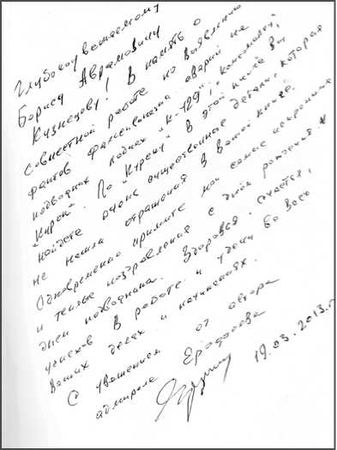 Глубокоуважаемому
Борису Аврамовичу
Кузнецову! В память о
совместной работе по выявлению
фактов фальсификации аварий на
подводных лодках "К-129", "Комсомолец",
"Курск". По "Курску" в этой книге Вы
найдете очень существенные детали, которая
не нашла отражения в Вашей книге.
Одновременно примите мои самые искренние
и теплые поздравления с днём рождения и
днем подводника. Здоровья, счастья,
успехов в работе и удачи во всех
Ваших делах и начинаниях.
С уважением от автора
адмирала
19.03.2013 г.